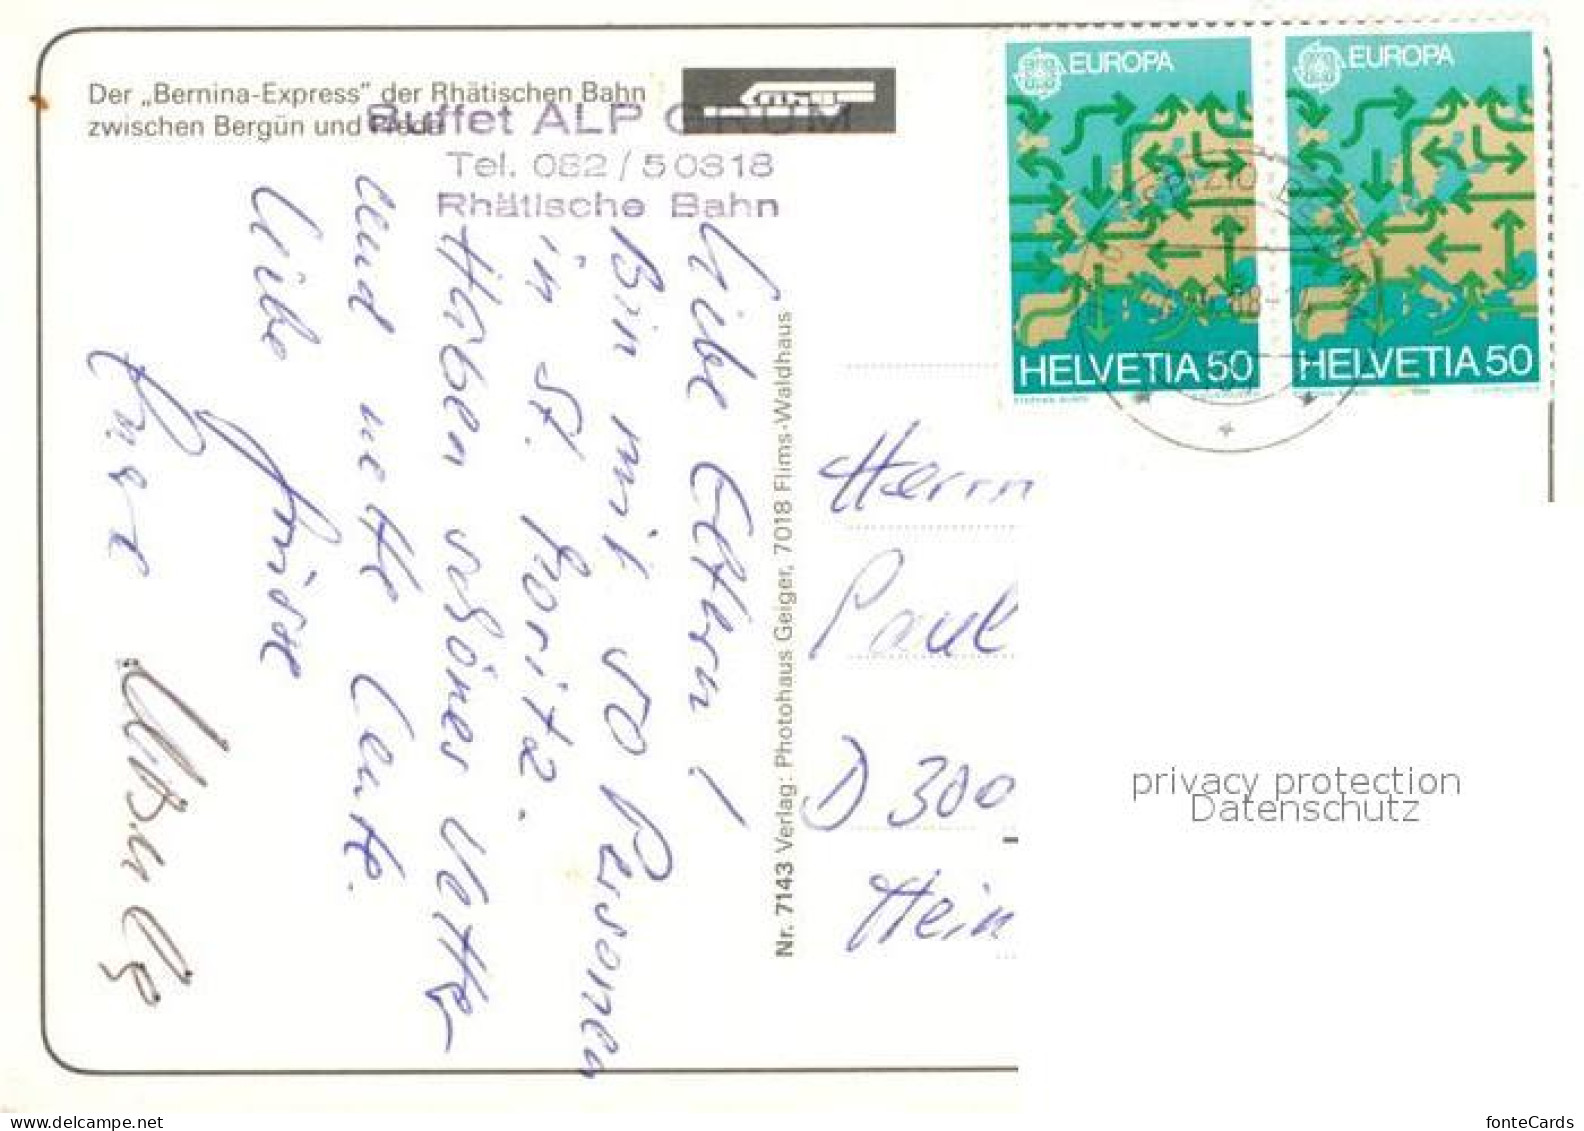 Der „Bernina-Express" der Rhätischen Bahn
zwischen Bergün und
Buffet ALP GRÜM
Tel. 082/50318
Rhätische Bahn
Liebe Eltern!
Bin mit 50 Personen
in St. Moritz.
Haben schönes Wetter
und nette Leute.
Liebe Grüsse
Nr. 7143 Verlag: Photohaus Geiger, 7018 Flims-Waldhaus
EUROPA
HELVETIA 50
EUROPA
HELVETIA 50
Herrn
Paul
D 300
Hein
privacy protection
Datenschutz
fonteCards